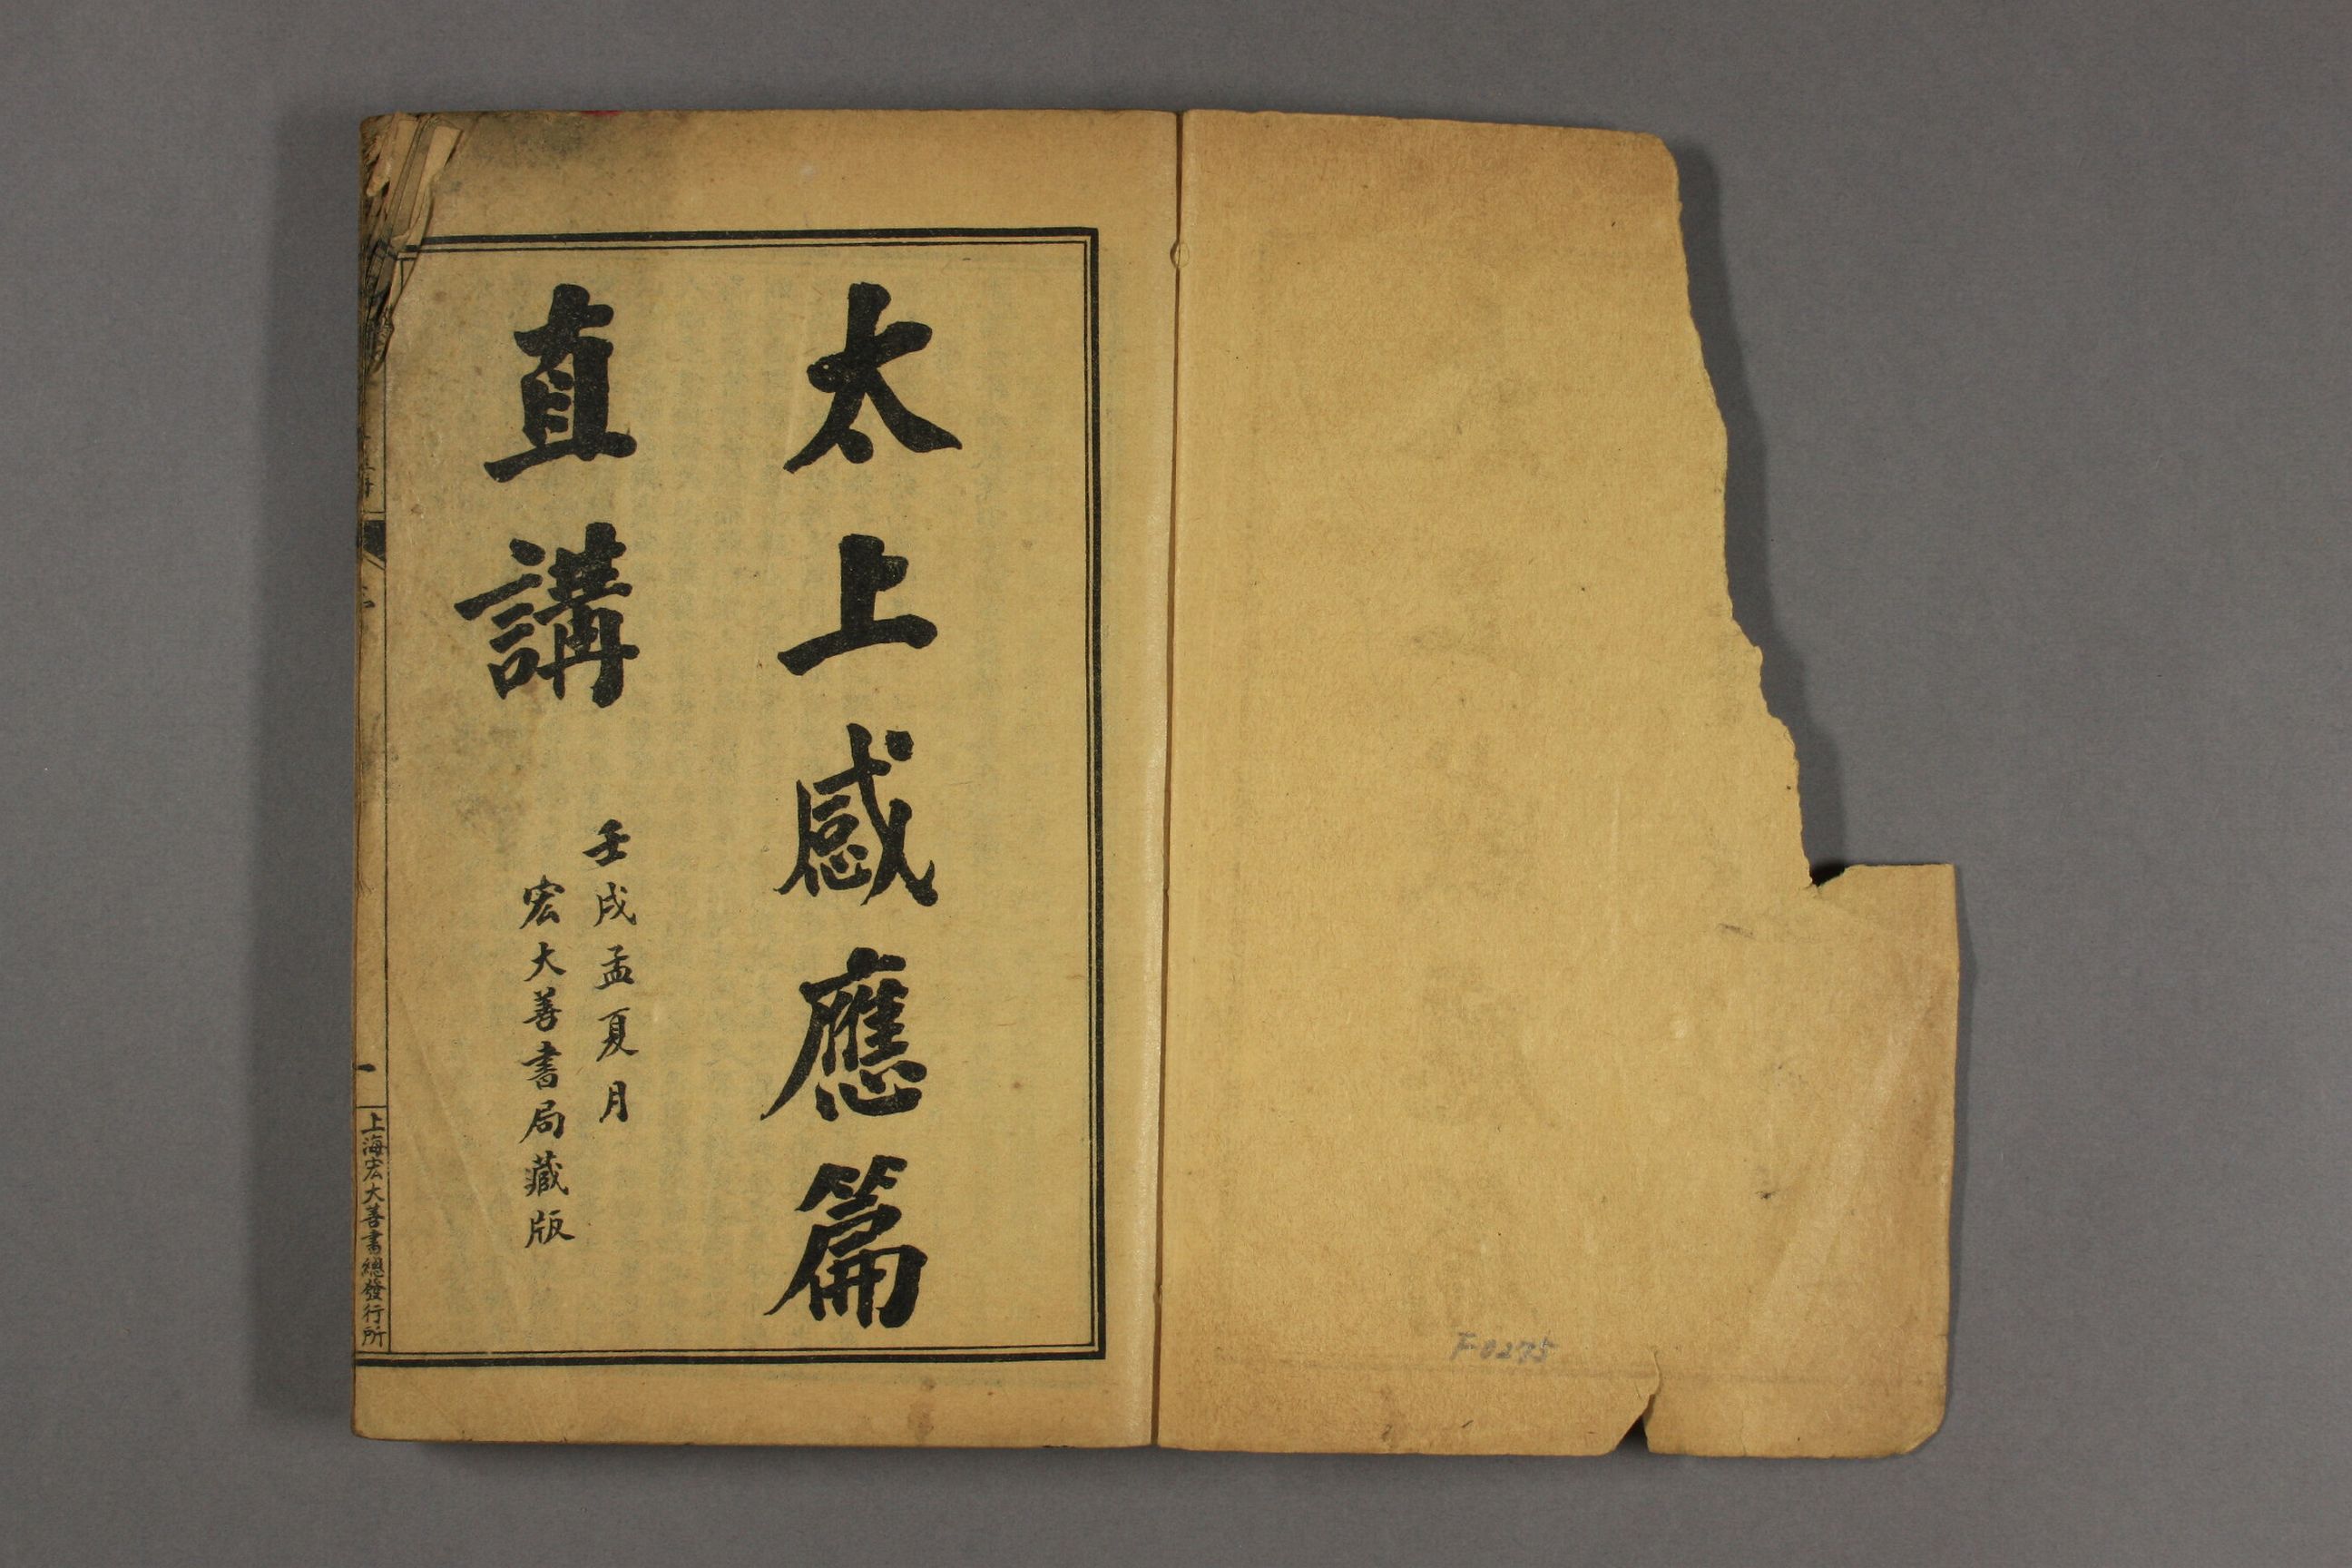 太上感應篇
直講
壬戌孟夏月
宏大善書局藏版
上海宏大善書總發行所
F-0275